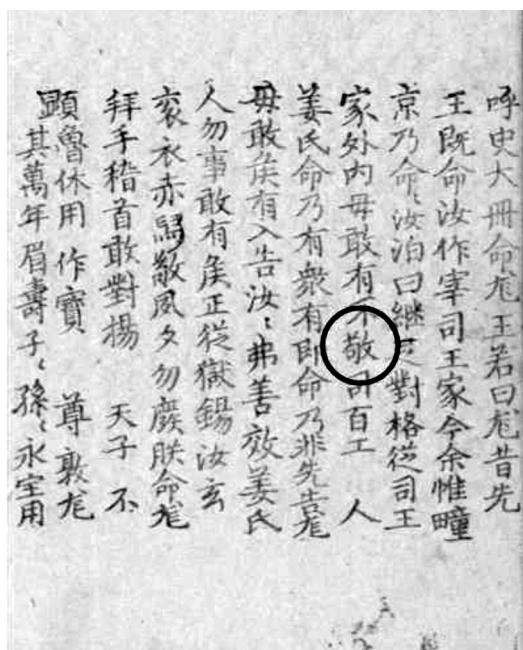 呼史大冊命尨王若曰尨昔先
王既命汝作宰司王家今余惟疃
京乃命〻汝洎曰繼疋對格從司王
家外內毋敢有不敬司百工 人
姜氏命乃有衆有即命乃非先告尨
毋敢矦有入告汝〻弗善效姜氏
人勿事敢有矦正從獄錫汝玄
衮衣赤舄敬夙夕勿廢朕命尨
拜手稽首敢對揚 天子 不
顯魯休用作寶 尊敦尨
其萬年眉壽子〻孫〻永宝用